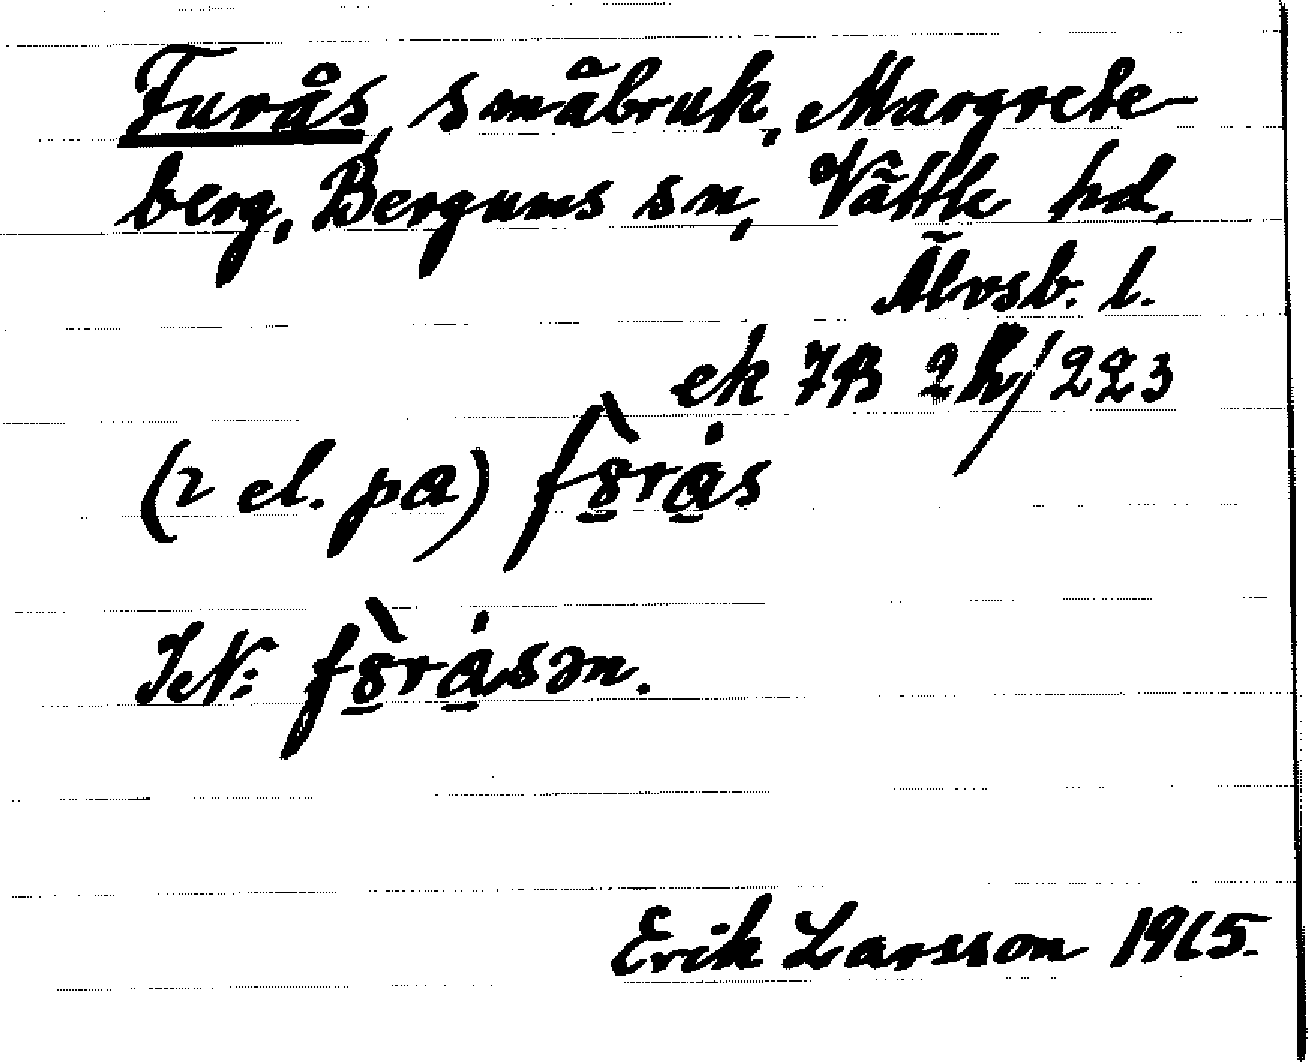 Furås, småbruk, Margrete-
berg, Bergums sn, Vättle hd,
Älvsb. l.
ek 7B 2h/223
(i el. pa)
IN:
Erik Larsson 1965.